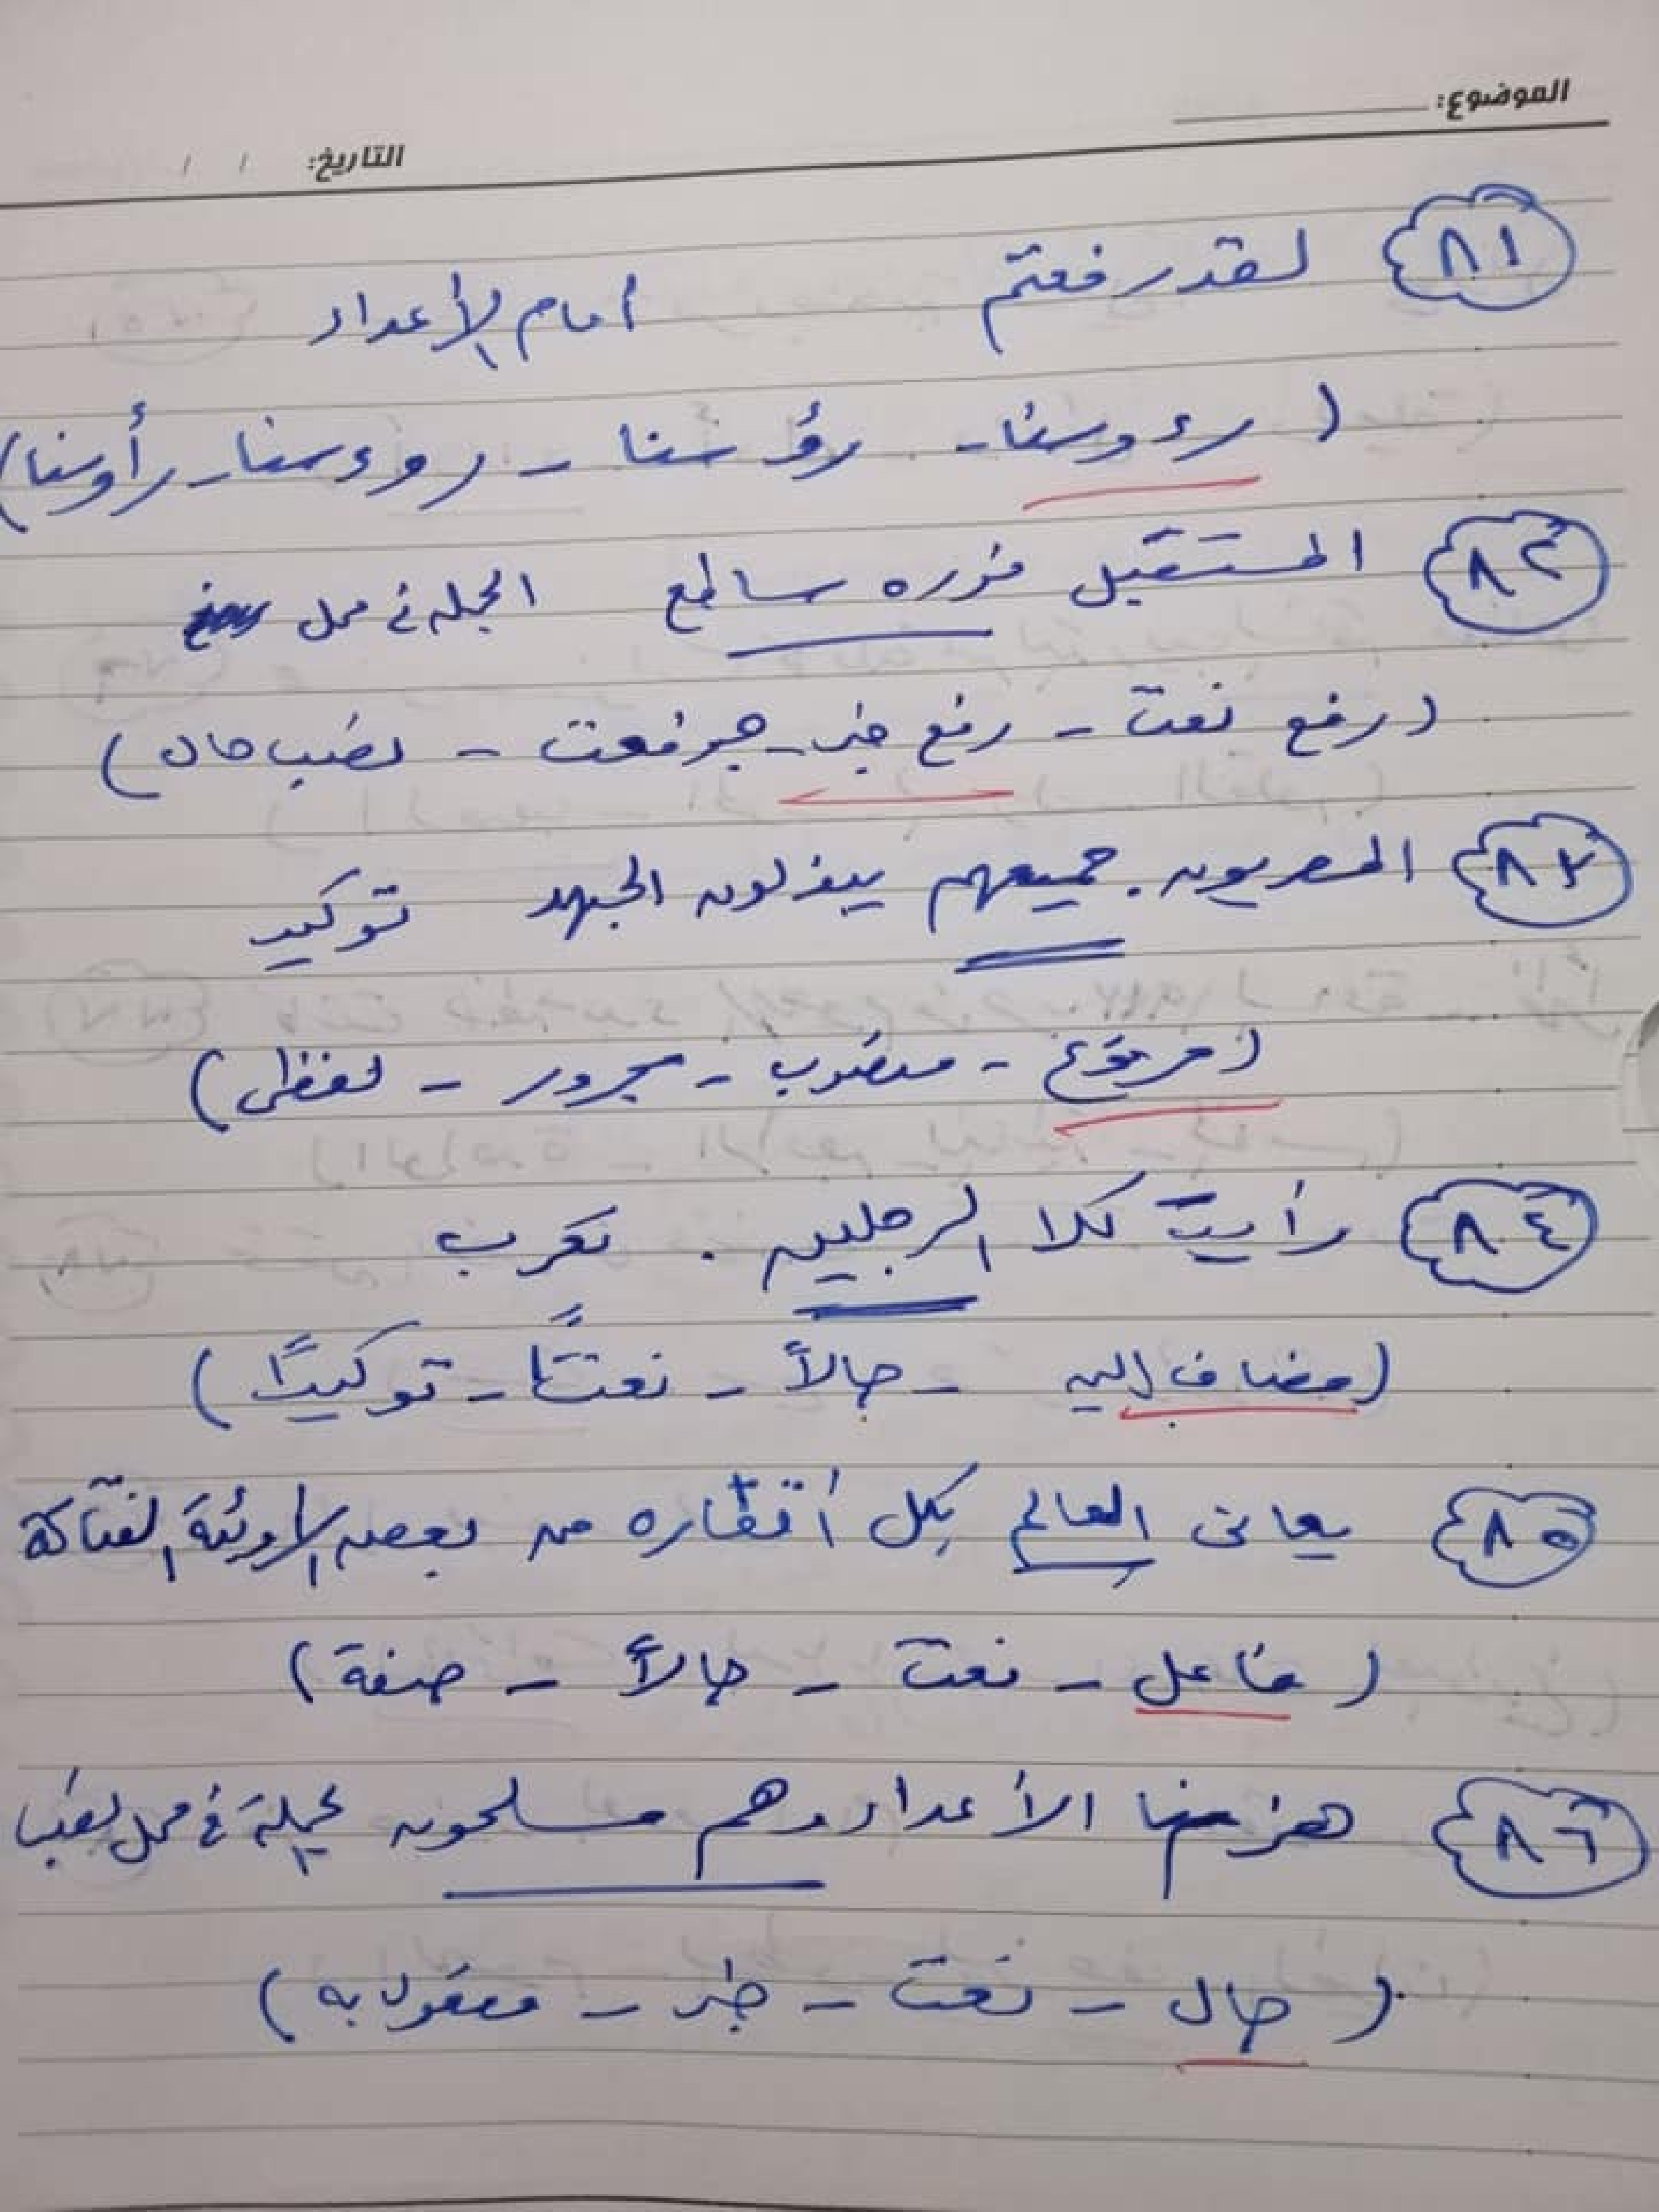 الموضوع:
التاريخ: / /
٨١ لقد رفعتم أمام الأعداء
( رءوسنا - رؤسنا - روءسنا - رأوسنا )
٨٢ المستقبل نوره ساطع الجملة في محل
( رفع نعت - رفع خبر - جر نعت - نصب حال )
٨٣ المصريون جميعهم يبذلون الجهد توكيد
( مرفوع - منصوب - مجرور - لفظى )
٨٤ رأيت كلا الرجلين . تعرب
( مضاف إليه - حالاً - نعتًا - توكيدًا )
٨٥ يعانى العالم بكل أقطاره من بعض الأوبئة الفتاكة
( فاعل - نعت - حالاً - صفة )
٨٦ هزمنا الأعداء وهم مسلحون جملة في محل نصب
( حال - نعت - خبر - مفعول به )